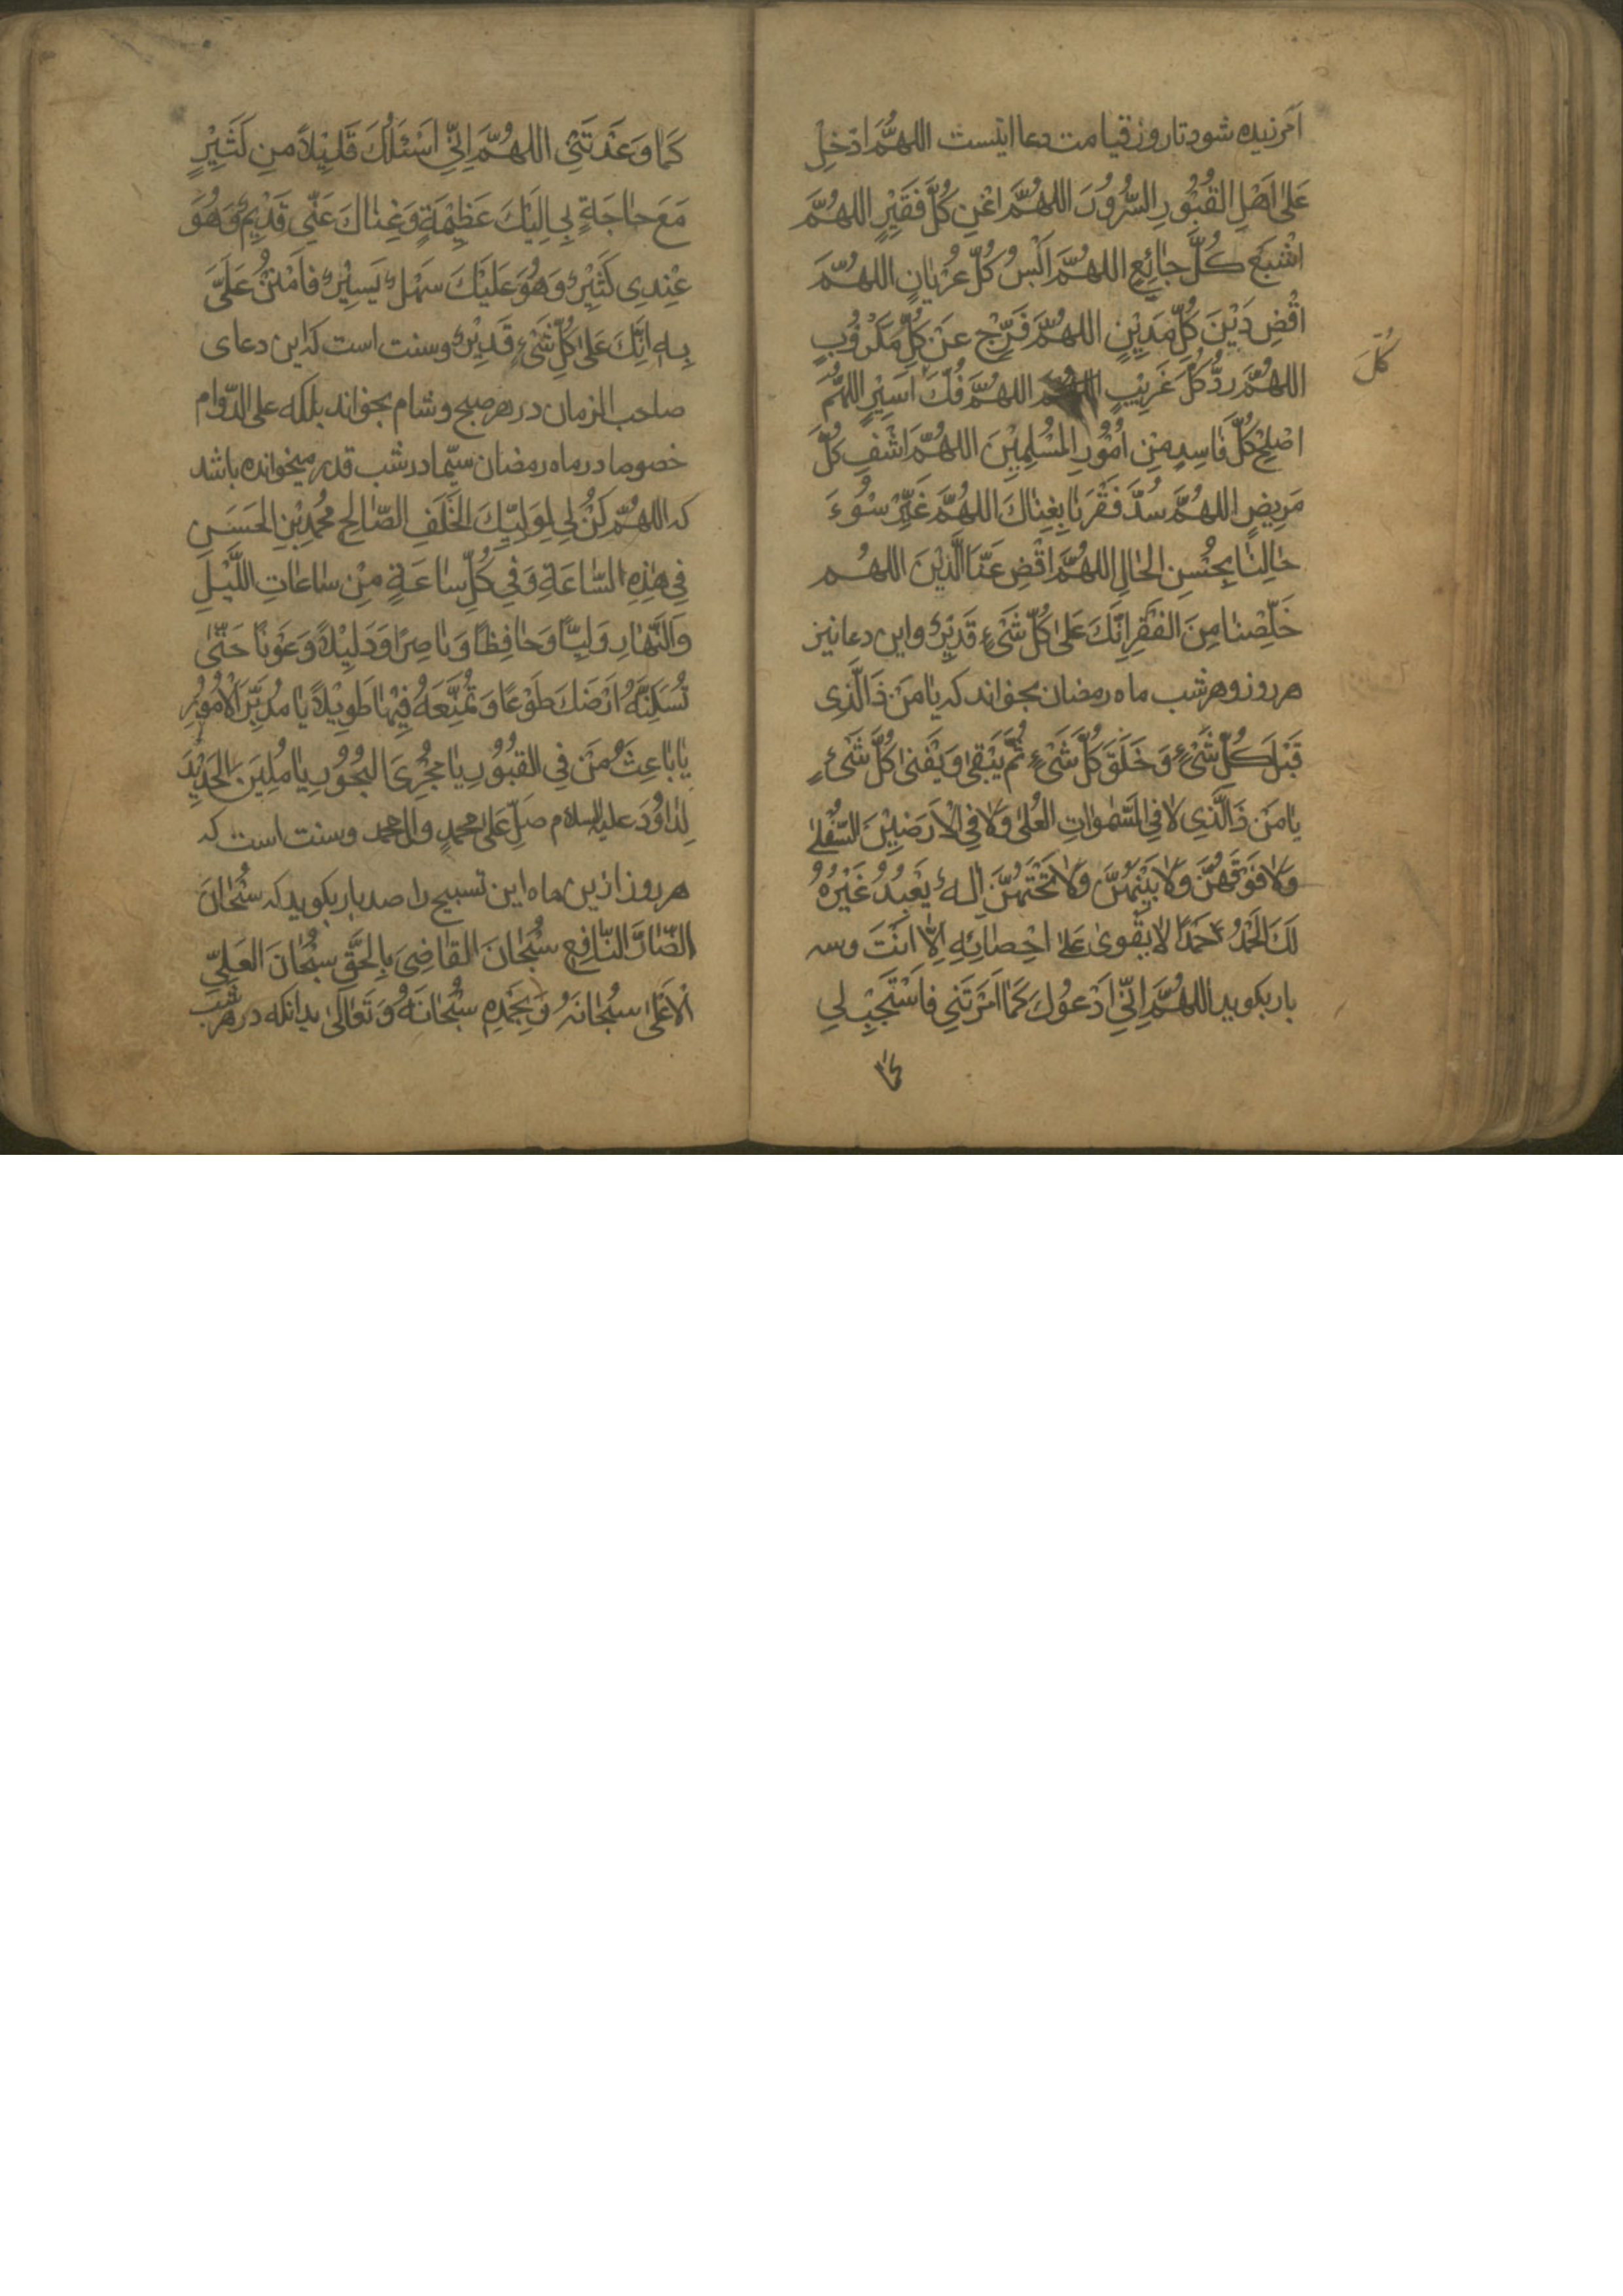 آمرزیده شود تا روز قیامت دعا اینست اللهُمَّ اَدْخِلْ
عَلىٰ اَهْلِ القُبُورِ السُّرُورَ اللهُمَّ اغْنِ كُلَّ فَقِيْرٍ اللهُمَّ
اشْبِعْ كُلَّ جٰائِعٍ اللهُمَّ اكْسُ كُلَّ عُرْيٰانٍ اللهُمَّ
اقْضِ دَيْنَ كُلِّ مَدِيْنٍ اللهُمَّ فَرِّجْ عَنْ كُلِّ مَكْرُوْبٍ
اللهُمَّ رُدَّ كُلَّ غَرِيْبٍ اللهُمَّ فُكَّ اَسِيْرٍ اللهُمَّ
كُلَّ
اصْلِحْ كُلَّ فٰاسِدٍ مِنْ اُمُوْرِ المُسْلِمِيْنَ اللهُمَّ اشْفِ كُلَّ
مَرِيْضٍ اللهُمَّ سُدَّ فَقْرَنٰا بِغِنٰاكَ اللهُمَّ غَيِّرْ سُوْءَ
حٰالِنٰا بِحُسْنِ الحٰالِ اللهُمَّ اقْضِ عَنَّا الَّذِيْنَ اللهُم
خَلِّصْنٰا مِنَ الفَقْرِ اِنَّكَ عَلىٰ كُلِّ شَيْءٍ قَدِيْرٌ و این دعا نیز
هر روز و هر شب ماه رمضان بخواند که یٰا مَنْ ذَالَّذِی
قَبْلَ كُلِّ شَيْءٍ وَ خَلَقَ كُلَّ شَيْءٍ ثُمَّ يَبْقىٰ وَ يَفْنىٰ كُلُّ شَيْءٍ
يٰا مَنْ ذَالَّذِی لاٰ فِی السَّمٰوٰاتِ العُلىٰ وَلاٰ فِی الْاَرَضِيْنَ السُّفْلىٰ
وَلاٰ فَوْقَهُنَّ وَلاٰ بَيْنَهُنَّ وَلاٰ تَحْتَهُنَّ اِلٰهٌ يُعْبَدُ غَيْرُهُ
لَكَ الحَمْدُ حَمْدًا لاٰ يَقْوىٰ عَلىٰ اِحْصٰائِهِ اِلاّٰ اَنْتَ و سه
بار بکوید اللهُمَّ اِنِّی اَدْعُوْكَ كَمٰا اَمَرْتَنِی فَاسْتَجِبْ لِی
كمٰا
كَمٰا وَعَدْتَنِی اللهُمَّ اِنِّی اَسْئَلُكَ قَلِيْلاً مِنْ كَثِيْرٍ
مَعَ حٰاجَةٍ بِی اِلَيْكَ عَظِيْمَةٍ وَ غِنٰاكَ عَنْهُ قَدِيْمٌ وَهُوَ
عِنْدِی كَثِيْرٌ وَ هُوَ عَلَيْكَ سَهْلٌ يَسِيْرٌ فَامْنُنْ عَلَیَّ
بِهِ اِنَّكَ عَلىٰ كُلِّ شَيْءٍ قَدِيْرٌ و سنت است که این دعای
صاحب الزمان در هر صبح و شام بخواند بلکه علی الدّوام
خصوصا در ماه رمضان سیّما در شب قدر میخوانده باشد
که اللهُمَّ كُنْ لِی لِوَلِيِّكَ الخَلَفِ الصّٰالِحِ مُحَمَّدِ بْنِ الحَسَنِ
فِی هٰذِهِ السّٰاعَةِ وَ فِی كُلِّ سٰاعَةٍ مِنْ سٰاعٰاتِ اللَّيْلِ
وَالنَّهٰارِ وَلِيًّا وَ حٰافِظًا وَ نٰاصِرًا وَ دَلِيْلاً وَ عَوْنًا حَتّىٰ
تُسْكِنَهُ اَرْضَكَ طَوْعًا وَ تُمَتِّعَهُ فِيْهٰا طَوِيْلاً يٰا مُدَبِّرَ الْاُمُوْرِ
يٰا بٰاعِثَ مَنْ فِی القُبُوْرِ يٰا مُجْرِیَ البُحُوْرِ يٰا مُلِيْنَ الحَدِيْدَ
لِدٰاوُدَ علیه السلام صَلِّ عَلىٰ مُحَمَّدٍ وال محمد و سنت است که
هر روز ازین ماه این تسبیح را صد بار بکوید که سُبْحٰانَ
الضّٰارِّ النّٰافِعِ سُبْحٰانَ القٰاضِیَ بِالحَقِّ سُبْحٰانَ العَلِیِّ
الْاَعْلىٰ سُبْحٰانَهُ وَ بِحَمْدِهِ سُبْحٰانَهُ وَ تَعٰالىٰ بدانکه در هر شب